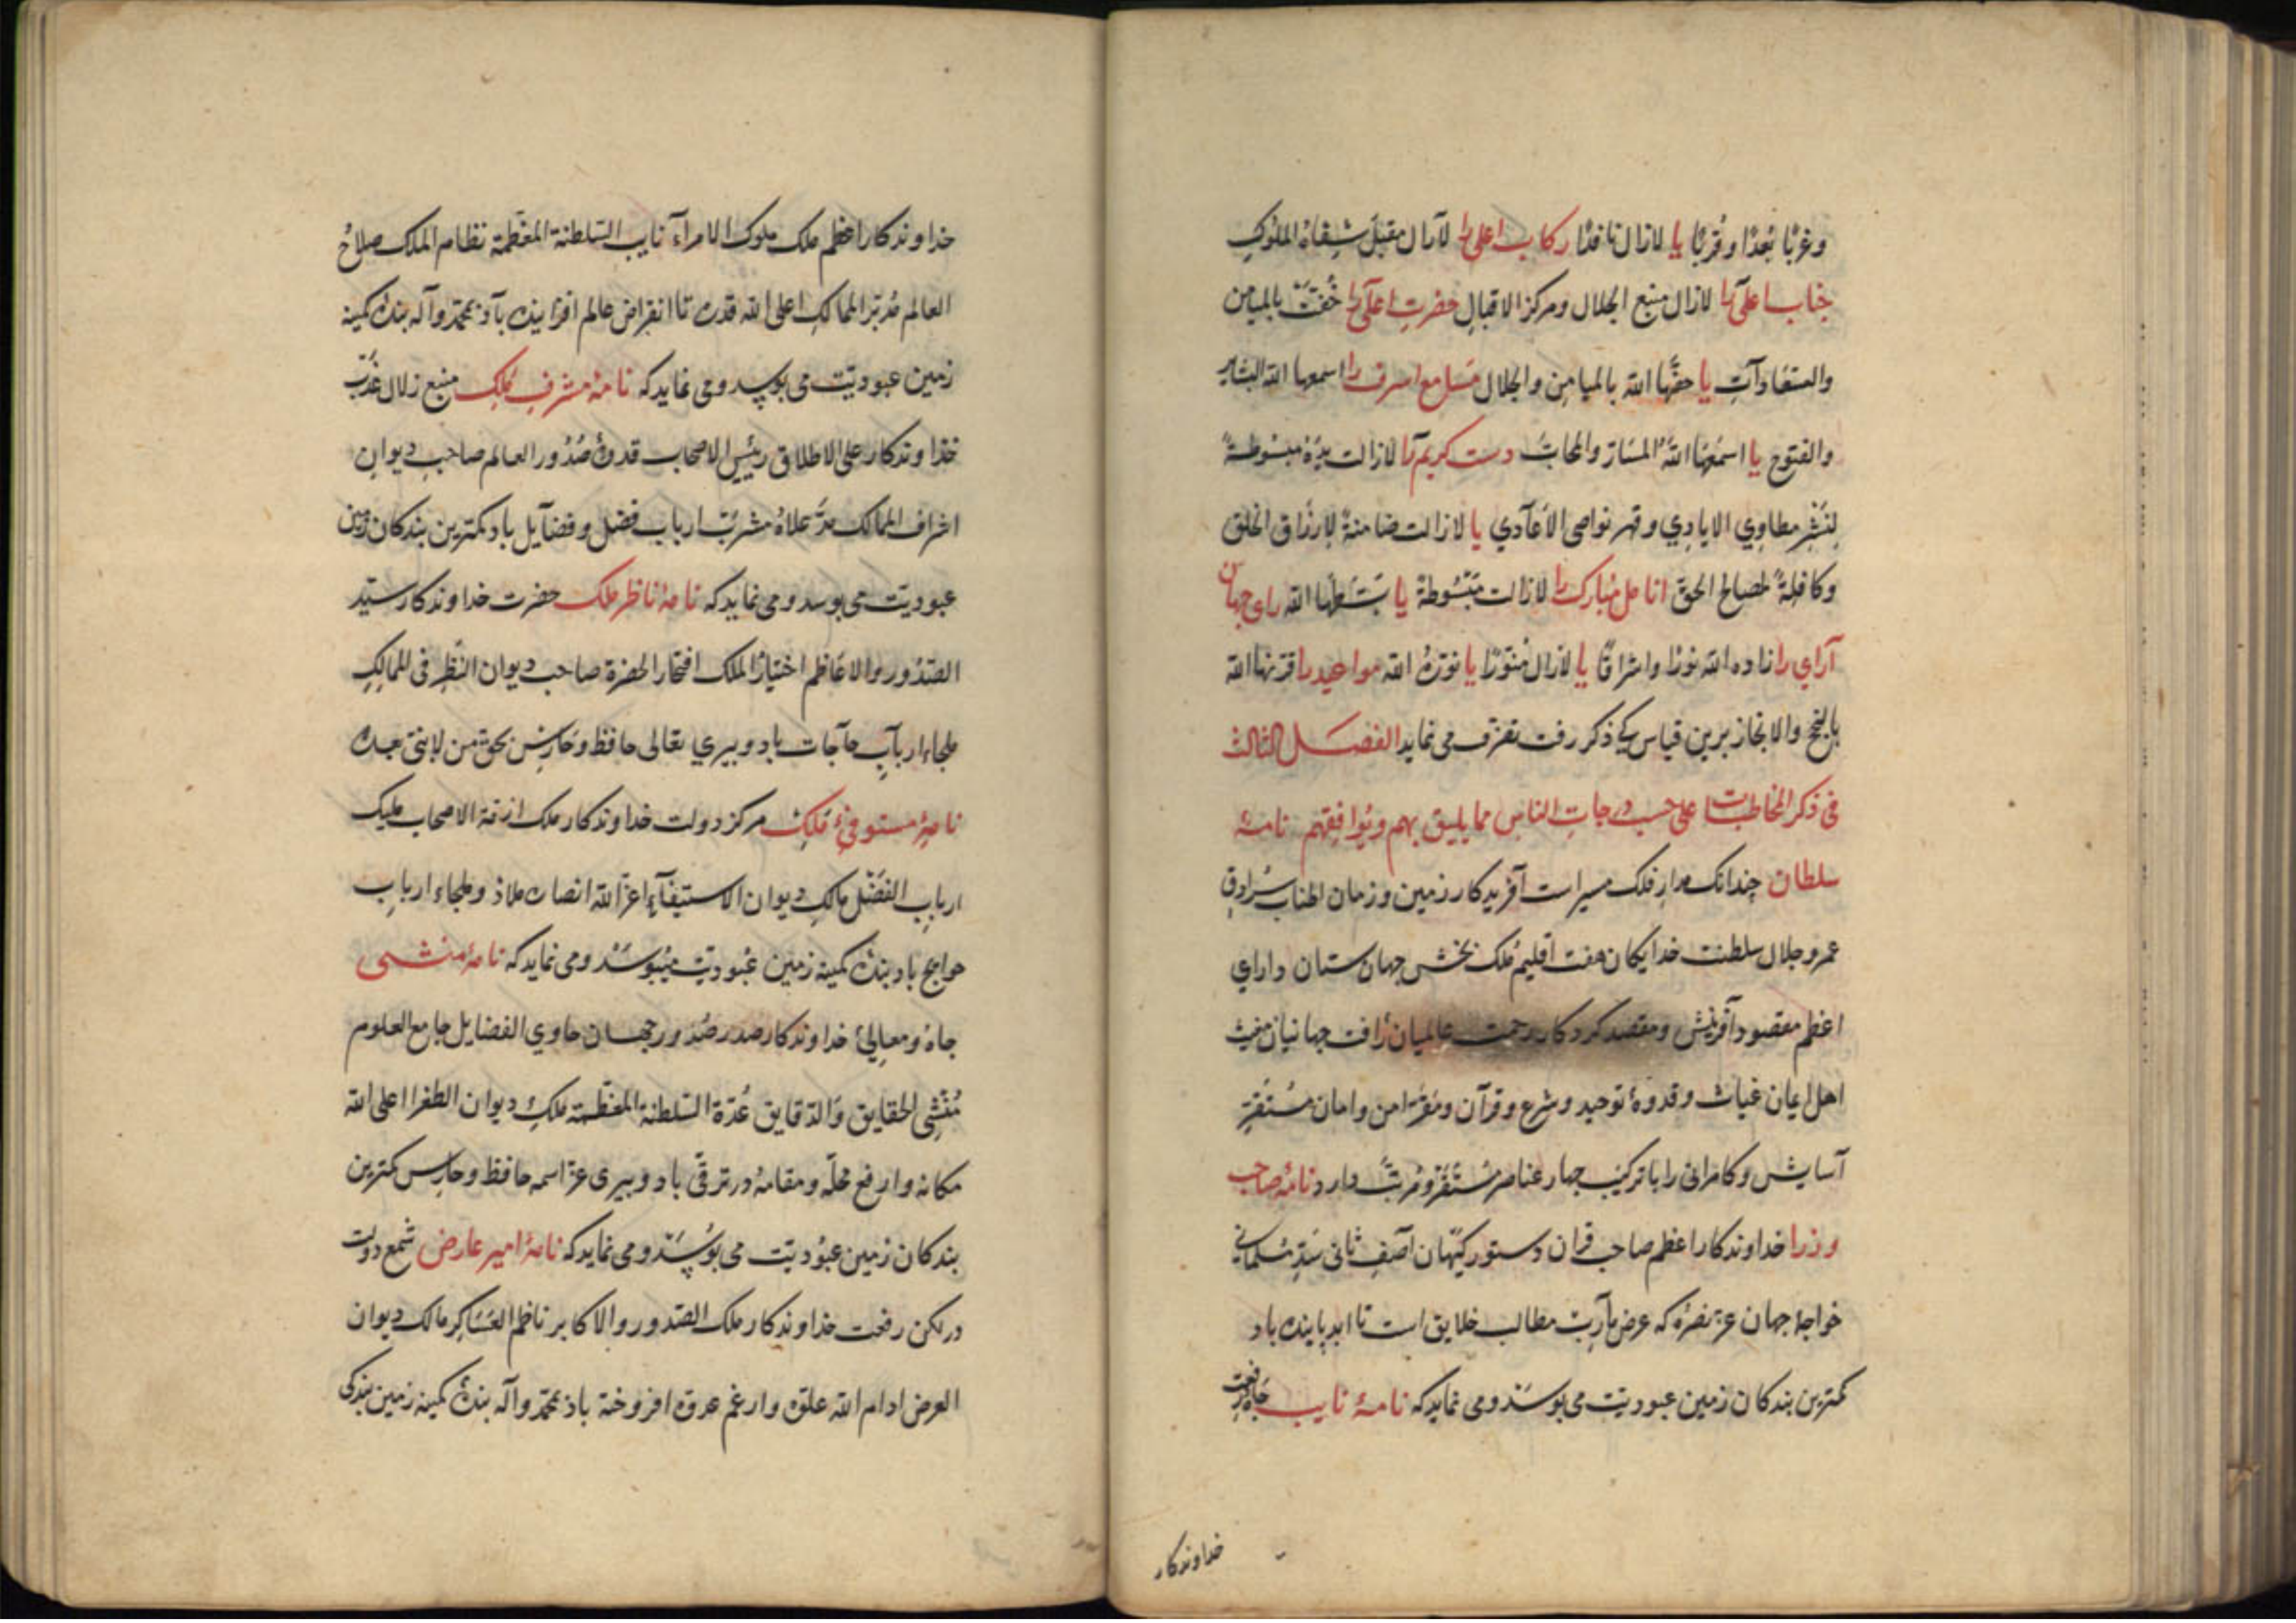 وغربًا بُعدًا وقُربًا یا لازال نافذًا رکاب اعلی را لازال مقبل شفاه الملوک
جناب اعلی را لازال منبع الجلال ومرکز الاقبال حضرت اعلی را حُفّت بالمیامن
والسعادات یا حفّها الله بالمیامن والجلال مسامع اشرف را اسمعها الله البشایر
والفتوح یا اسمعها الله المسارّ والمحابّ دست کریم را لازالت یده مبسوطةً
لنشر مطاوی الایادی وقهر نواصی الاعادی یا لازالت ضامنةً لارزاق الخلق
وکافلةً لمصالح الحق انامل مبارک را لازالت مبسوطةً یا بسطها الله رای جهان
آرای را زاده الله نورًا واشراقًا یا لازال منوّرًا یا نوّره الله مواعید را قرنها الله
بالنجح والانجاز برین قیاس کی ذکر رفت تصرف می نماید الفصل الثالث
فی ذکر المخاطبات علی حسب درجات الناس مما یلیق بهم ویوافقهم نامهٔ
سلطان چندانک مدار فلک میسر است آفریدکار زمین وزمان اطناب سرادق
عمر وجلال سلطنت خدایکان هفت اقلیم ملک بخش جهان ستان دارای
اعظم مقصود آفرینش ومقصد کردکار رحمت عالمیان رافت جهانیان مغیث
اهل ایمان غیاث وقدوهٔ توحید وشرع وقرآن ومقرّ امن وامان مستقرّ
آسایش وکامرانی را با ترکیب چهار عناصر مستقر ومرتب دارد نامهٔ صاحب
وزرا خداوندکار اعظم صاحب قران دستور کیهان آصف ثانی سدّ مسلمانی
خواجهٔ جهان عزّ نصره که عرض مآرب مطالب خلایق است تا ابد پاینده باد
کمترین بندکان زمین عبودیّت می بوسد ومی نماید که نامهٔ نایب جاه ورفعت
خداوندکار
خداوندکار اعظم ملک ملوک الامراء نایب السلطنة المعظّمة نظام الملک صلاح
العالم مدبّر الممالک اعلی الله قدره تا انقراض عالم افزاینده باد بمحمّد وآله بندهٔ کمینه
زمین عبودیّت می بوسد ومی نماید که نامهٔ مشرف ملک منبع زلال عذب
خداوندکار علی الاطلاق رئیس الاصحاب قدوهٔ صدور العالم صاحب دیوان
اشراف الممالک مدّ علاه مشرب ارباب فضل وفضایل باد کمترین بندکان زمین
عبودیّت می بوسد ومی نماید که نامهٔ ناظر ملک حضرت خداوندکار سیّد
الصدور والاعاظم اختیار الملک افتخار الحضرة صاحب دیوان النظر فی الممالک
ملجاء ارباب حاجات باد وبیری تعالی حافظ وحارس بحق من لا نبیّ بعده
نامهٔ مستوفیٔ ملک مرکز دولت خداوندکار ملک ازمّة الاصحاب ملیک
ارباب الفضل مالک دیوان الاستیفاء اعزّ الله انصاره ملاذ وملجاء ارباب
حوایج باد بندهٔ کمینه زمین عبودیّت میبوسد ومی نماید که نامهٔ منشی
جاه ومعالیٔ خداوندکار صدر صدور جهان حاوی الفضایل جامع العلوم
مُنشی الحقایق والدقایق عُدّة السلطنة المعظّمة ملک دیوان الطغرا اعلی الله
مکانه وارفع محلّه ومقامه در ترقّی باد وبیری عزّ اسمه حافظ وحارس کمترین
بندکان زمین عبودیّت می بوسد ومی نماید که نامهٔ امیر عارض شمع دولت
در لکن رفعت خداوندکار ملک الصدور والاکابر ناظم العساکر مالک دیوان
العرض ادام الله علوّه وارغم عدوّه افروخته باد بمحمّد وآله بندهٔ کمینه زمین بندکی